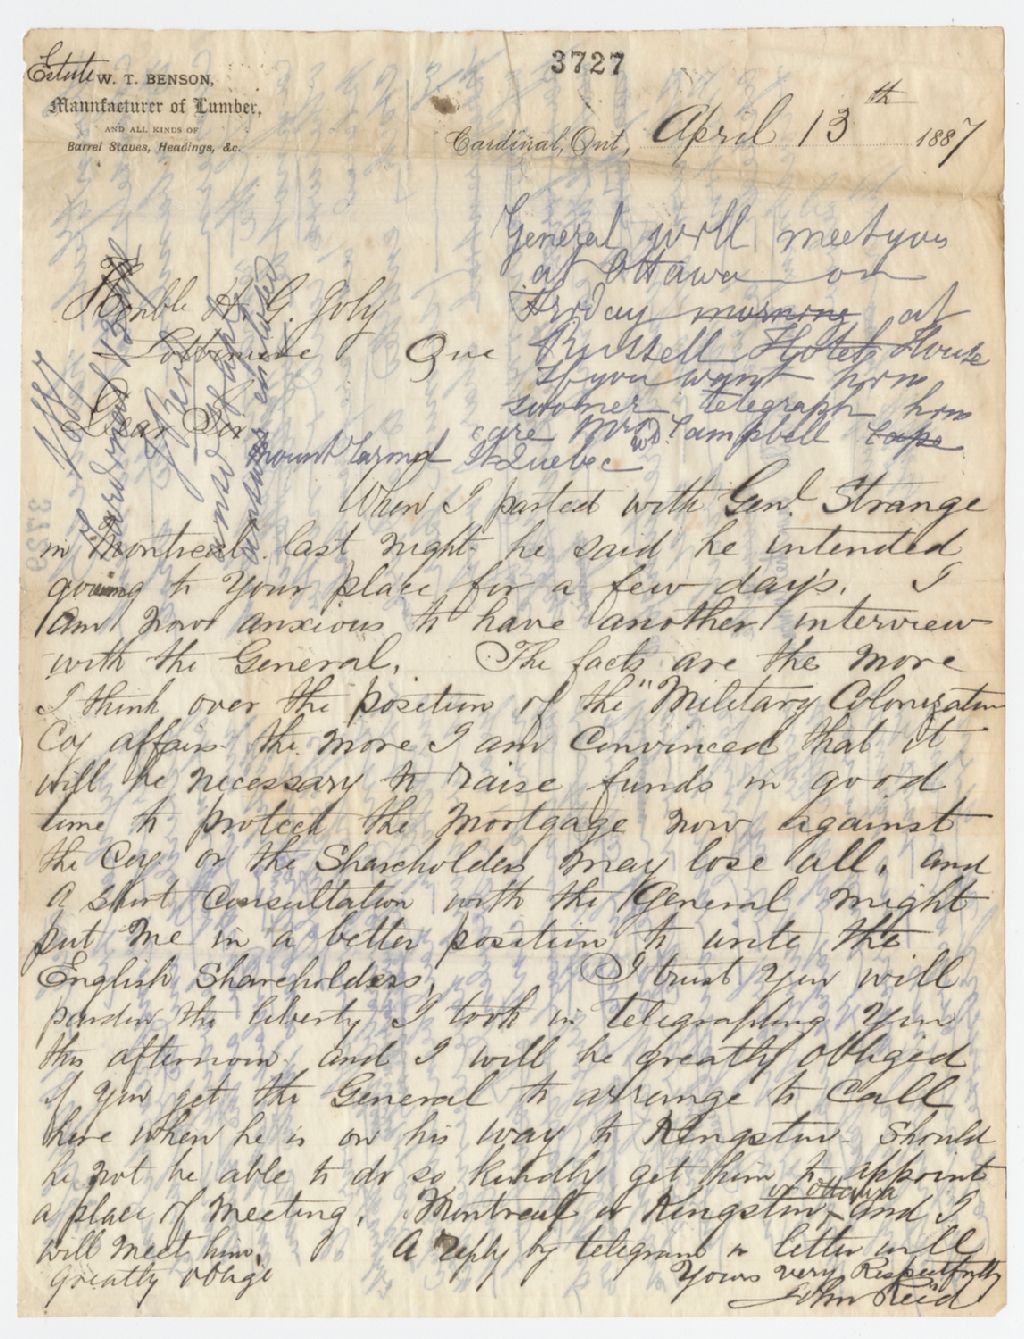 3727
Estate W. T. BENSON,
Manufacturer of Lumber,
AND ALL KINDS OF
Barrel Staves, Headings, &c.
Cardinal, Ont, April 13th 1887
General will meet you
at Ottawa on
Friday morning at
Russell Hotel House
If you want him
sooner telegraph him
care Mrs Campbell Cape
Mount Quebec
Honble H. G. Joly
Lotbiniere Que
Dear Sir
When I parted with Genl. Strange
in Montreal last night he said he intended
going to your place for a few days. I
am now anxious to have another interview
with the General. The facts are the more
I think over the position of the "Military Colonization
Coy affairs the more I am convinced that it
will be necessary to raise funds in good
time to protect the Mortgage now against
the Coy or the Shareholders may lose all, and
a short consultation with the General might
put me in a better position to write the
English Shareholders, I trust you will
pardon the liberty I took in telegraphing you
this afternoon and I will be greatly obliged
if you get the General to arrange to call
here when he is on his way to Kingston Should
he not be able to do so kindly get him to appoint
a place of meeting, Montreal or Kingston or Ottawa and I
will meet him. A reply by telegram or letter will
greatly oblige
Yours very Respectfully
John Reid